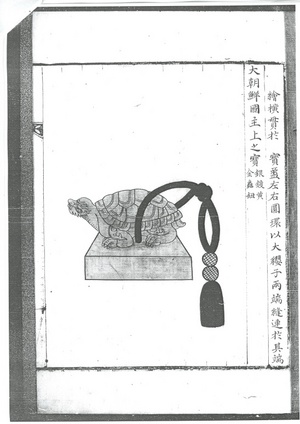 繪橫貫於 寶蓋左右圓環以大纓子兩端縫連於其端
大朝鮮國主上之寶
銀鍍黃
金龜鈕